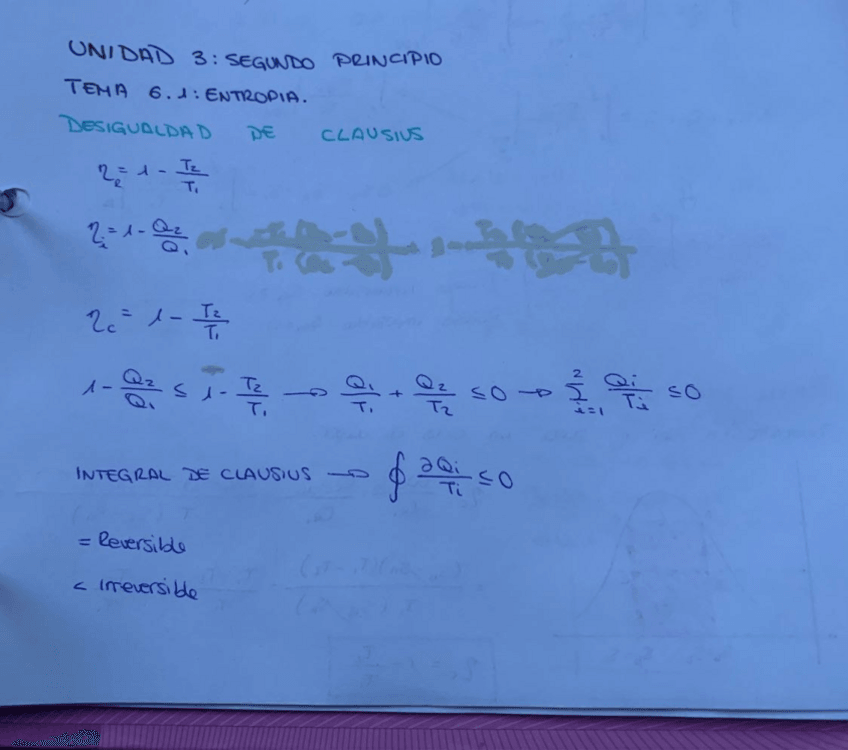 UNIDAD 3: SEGUNDO PRINCIPIO
TEMA 6.1: ENTROPIA.
DESIGUALDAD DE CLAUSIUS
η_R = 1 - T₂/T₁
η_i = 1 - Q₂/Q₁
η_c = 1 - T₂/T₁
1 - Q₂/Q₁ ≤ 1 - T₂/T₁ → Q₁/T₁ + Q₂/T₂ ≤ 0 → Σ_{i=1}^{2} Qi/Ti ≤ 0
INTEGRAL DE CLAUSIUS → ∮ ∂Qi/Ti ≤ 0
= Reversible
< Irreversible